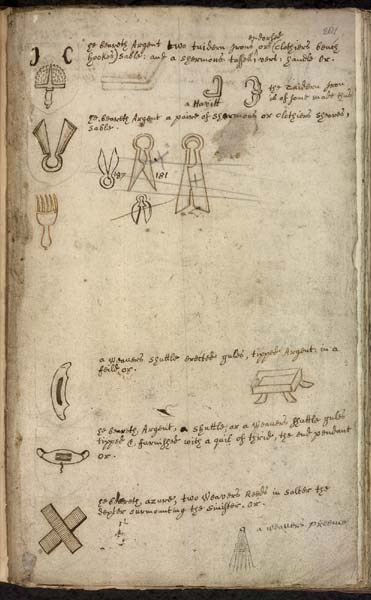 he beareth Argent two tuidern Irons or (Clothiers bench endorsed
hookes) sable: and a shermons tassell, vert: handle or.
a Havitt
the Tuidern Iron
is of some made thus
he beareth Argent a paire of shermons or Clothiers sheares,
sable.
187
181
a Weavers shuttle erected gules, tipped Argent, in a
feild or.
he beareth, Argent, a shuttle, or a Weavers shuttle gules
tipped &c, furnished with a quil of thrid, the end pendant
or.
he beareth, azure, two Weavers Reeds in salter the
dexter surmounting the sinister. or.
a weavers